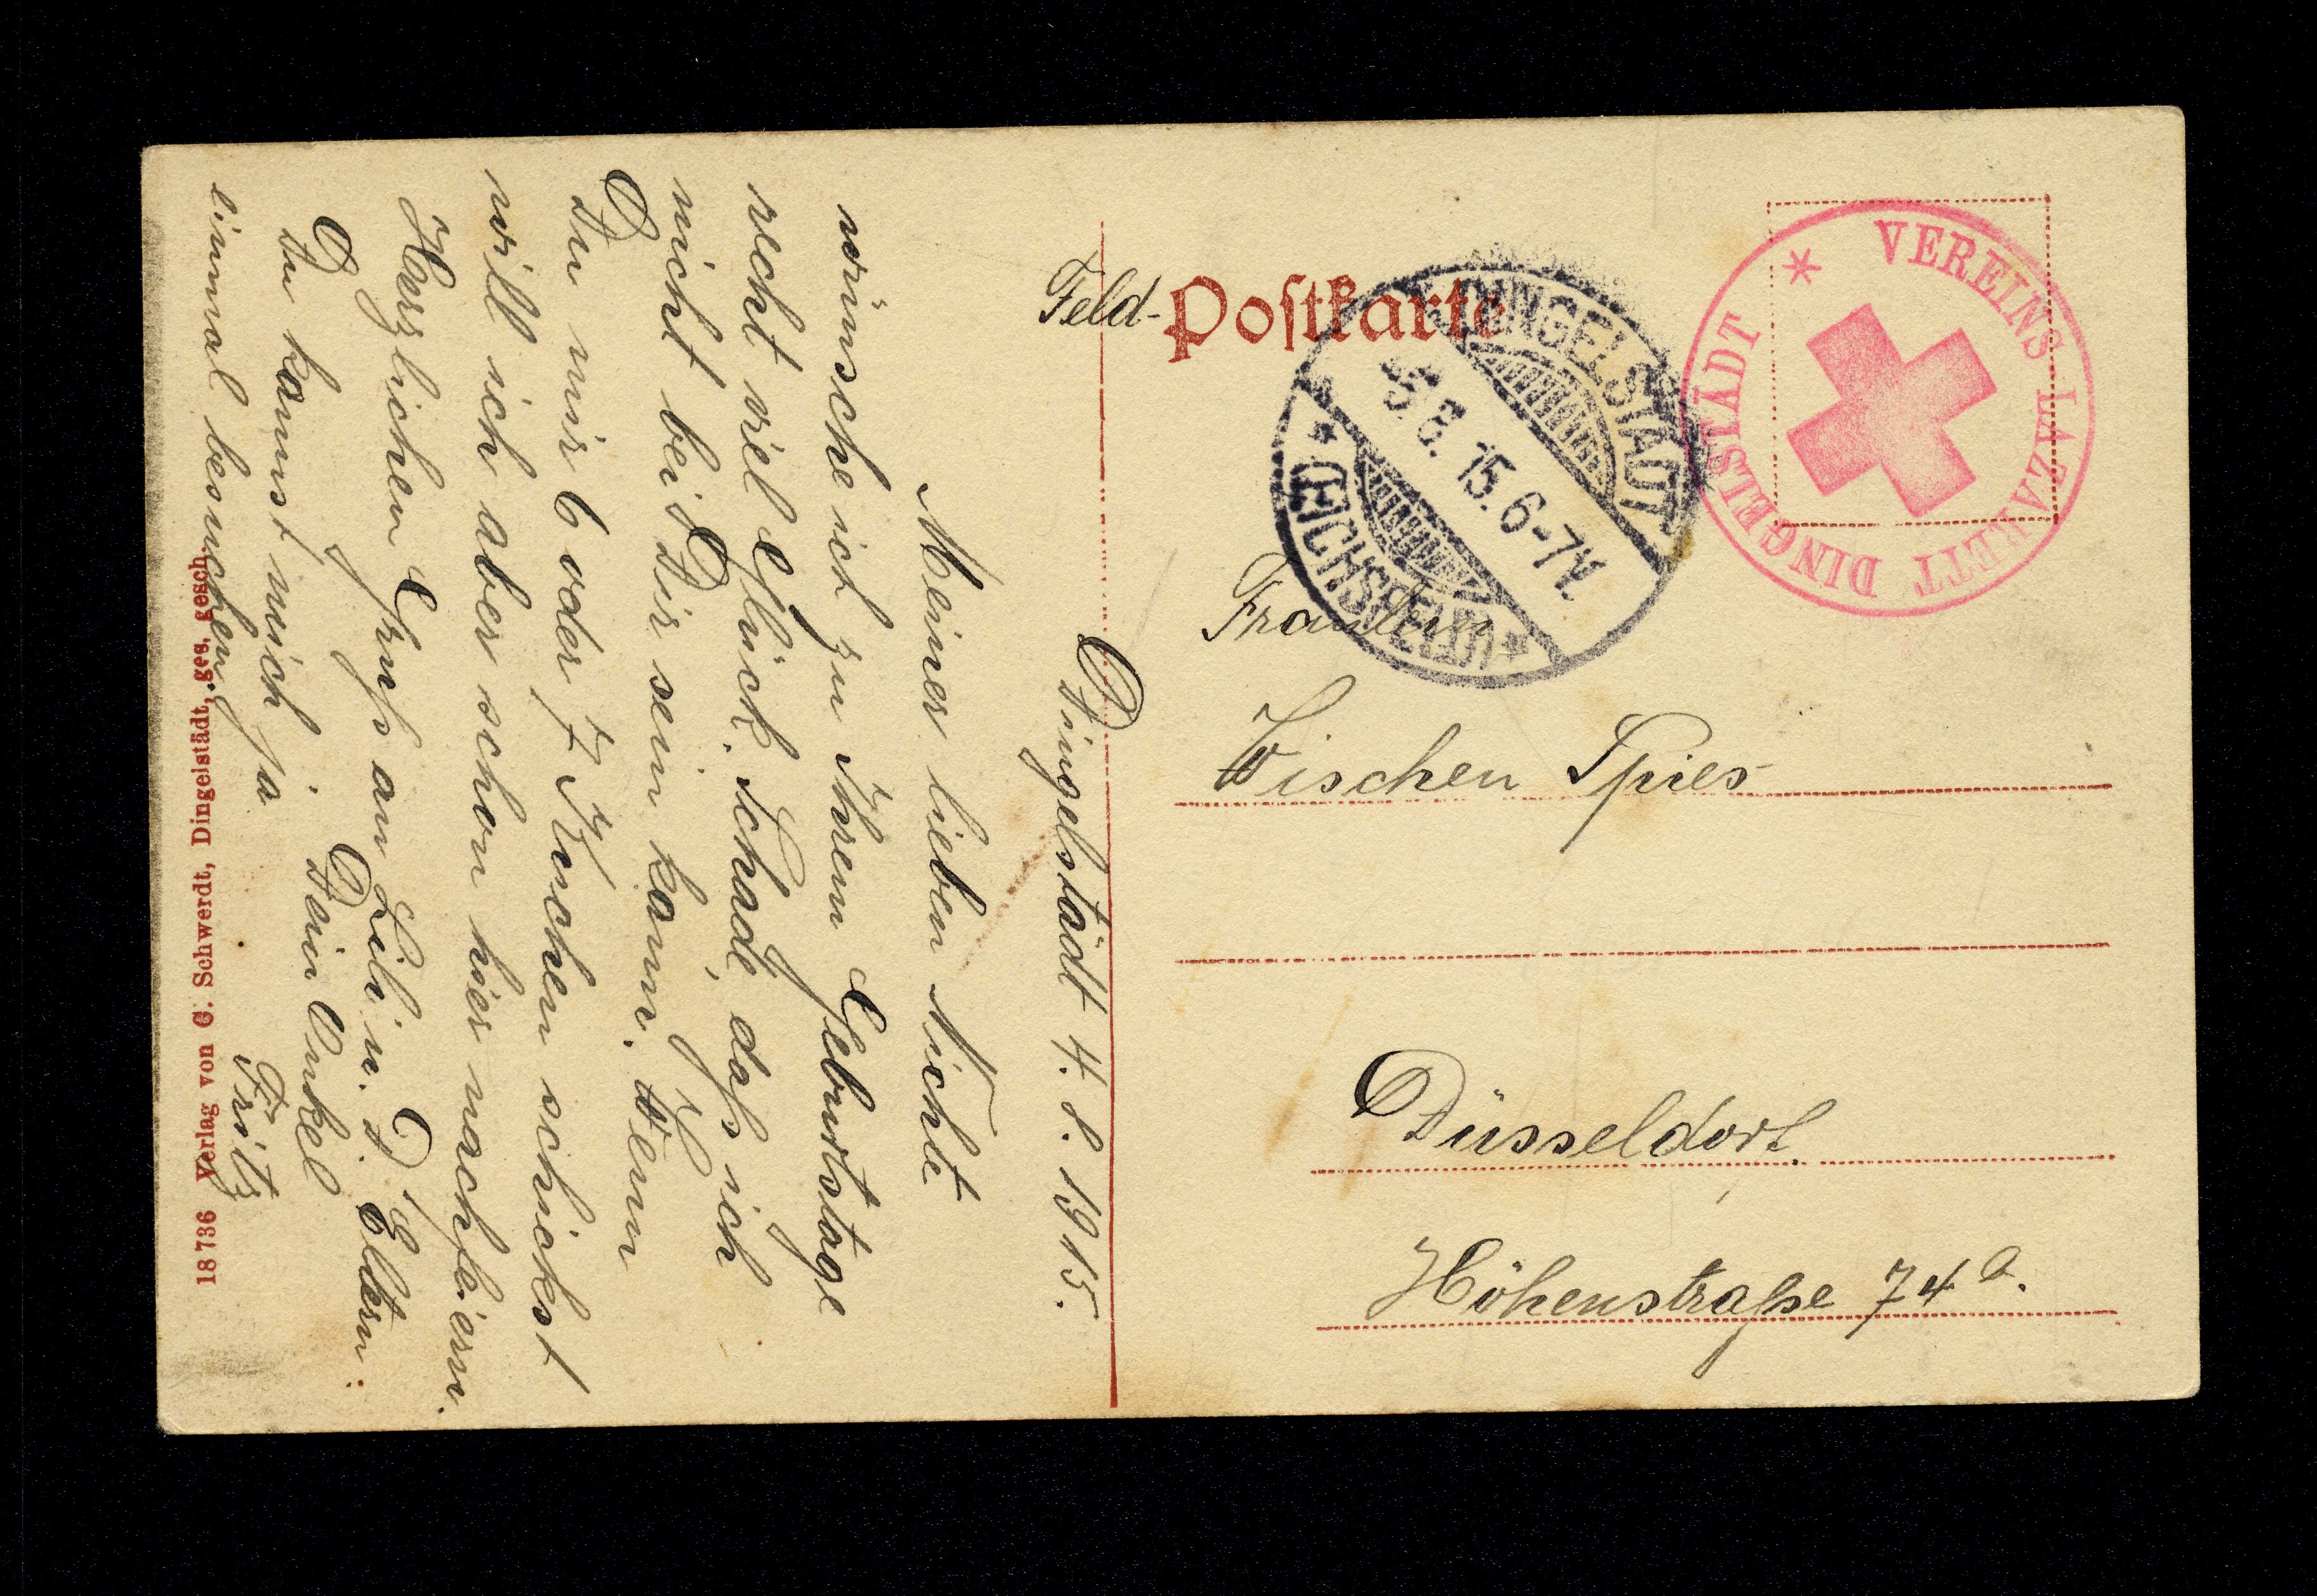 Feld-Postkarte
VEREINS-LAZARETT DINGELSTÄDT *
DINGELSTÄDT
5 8. 15. 6-7N.
* (EICHSFELD) *
Fräulein
Spies
Düsseldorf.
Höhenstraße 74a.
Dingelstädt 4. 8. 1915.
Meiner lieben Nichte
wünsche ich zu Ihrem Geburtstage
recht viel Glück. Schade, daß ich
nicht bei Dir sein kann. Wenn
Du mir 6 oder 7 Kuchen schickst
will ich aber schon hier nachfeiern.
Herzlichen Gruß an u. D. Eltern.
Dein Onkel
Fritz
Du kannst mich ja
einmal besuchen.
18736 Verlag von C. Schwerdt, Dingelstädt, ges. gesch.